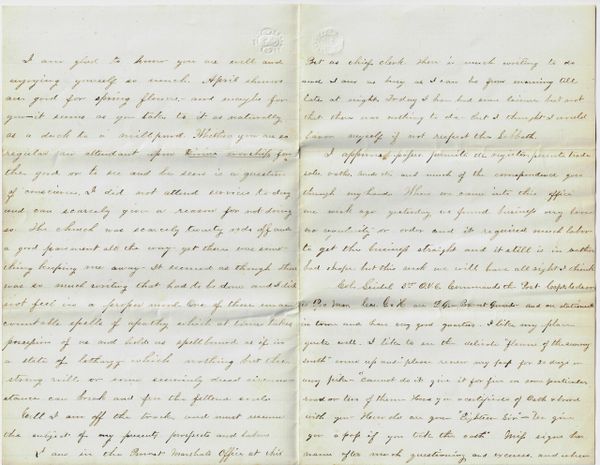 I am glad to know you are well and
enjoying yourself so much. April showers
are good for spring flowers and maybe for
you it seems as you take to it as naturally
as a duck to a mill pond. Whether you are so
regular an attendant upon Divine worship for
the good or to see and be seen is a question
of conscience. I did not attend services to day
and can scarcely give a reason for not doing
so. The church was scarcely twenty rods off and
a good pavement all the way yet there was some
thing keeping me away. It seemed as though there
was so much writing that had to be done and I did
not feel in a proper mood. One of those unac
countable spells of apathy which at times takes
possession of us and hold us spellbound as if in
a state of lethargy which nothing but the
strong will or some seemingly direct circum
stance can break and free the fettered souls
Well I am off the track and must resume
the subject of my present prospects and labors
I am in the Provost Marshals Office at this
But as chief clerk there is much writing to do
and I am as busy as I can be from morning till
late at night. Today I have had some leisure but not
that there was nothing to do but I thought I would
favor myself if not respect the Sabbath.
I approve of paper permits to register, permits trade
sales oaths and etc and much of the correspondence goes
through my hands. When we came into this office
one week ago yesterday we found business very loose
no or order and it required much labor
to get the business straight and it still is in rather
bad shape but this week we will have all right I think
Col. 3d O.V.C. Commands the Post.
is Pro Mar. Cos are Pro Guards and are stationed
in town and have very good quarters. I like my place
quite well. I like to see the delicate "flowers of the sunny
south" come up and "please renew my pass for 30 days or
any "Cannot do it give it for five on some particular
road or ten of them. Have you a certificate of Oath
with you" How do are you "Eighteen Sir" "Ill give
you a pass if you take the oath" Miss signs her
name after much questioning and excuses, and when